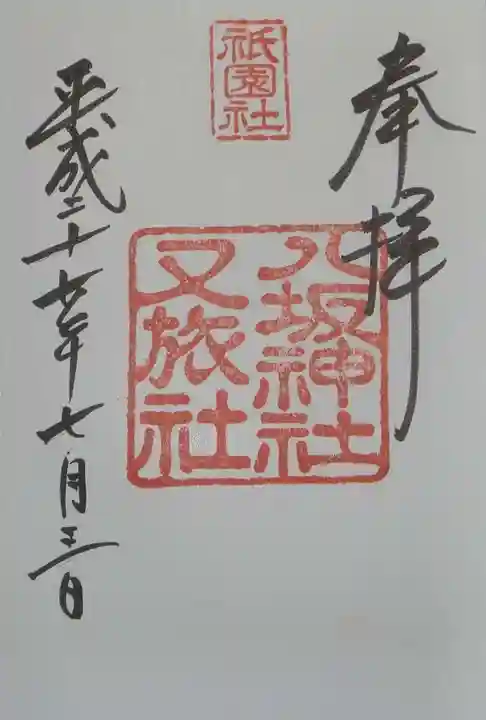 奉拝
祇園社
八坂神社
又旅社
平成二十七年七月 日